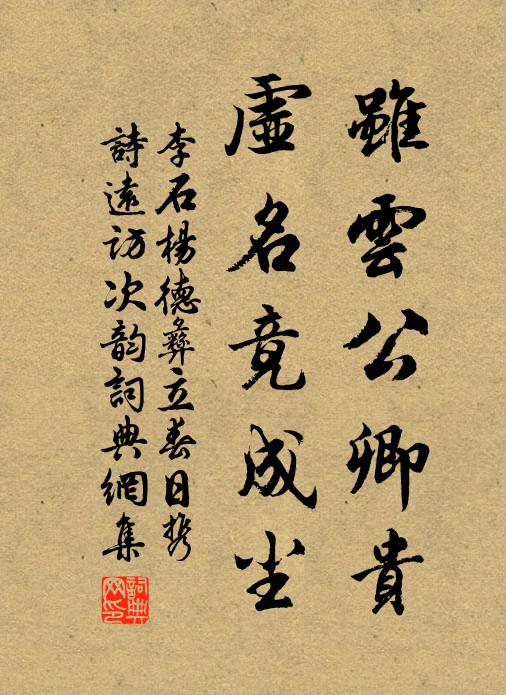 雖雲公卿貴
虛名竟成尘
李石楊德彝立春日携
詩遠訪次韵詞典網集
詞典网印